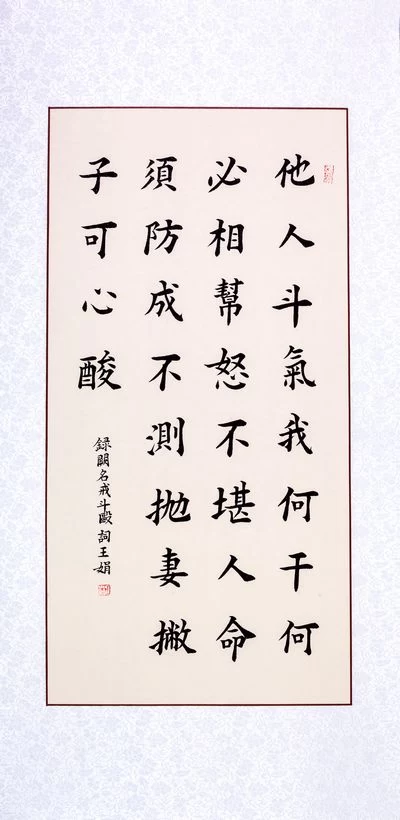 他人斗氣我何干何
必相幫怒不堪人命
須防成不測拋妻撇
子可心酸
録闕名戒斗毆詞王娟